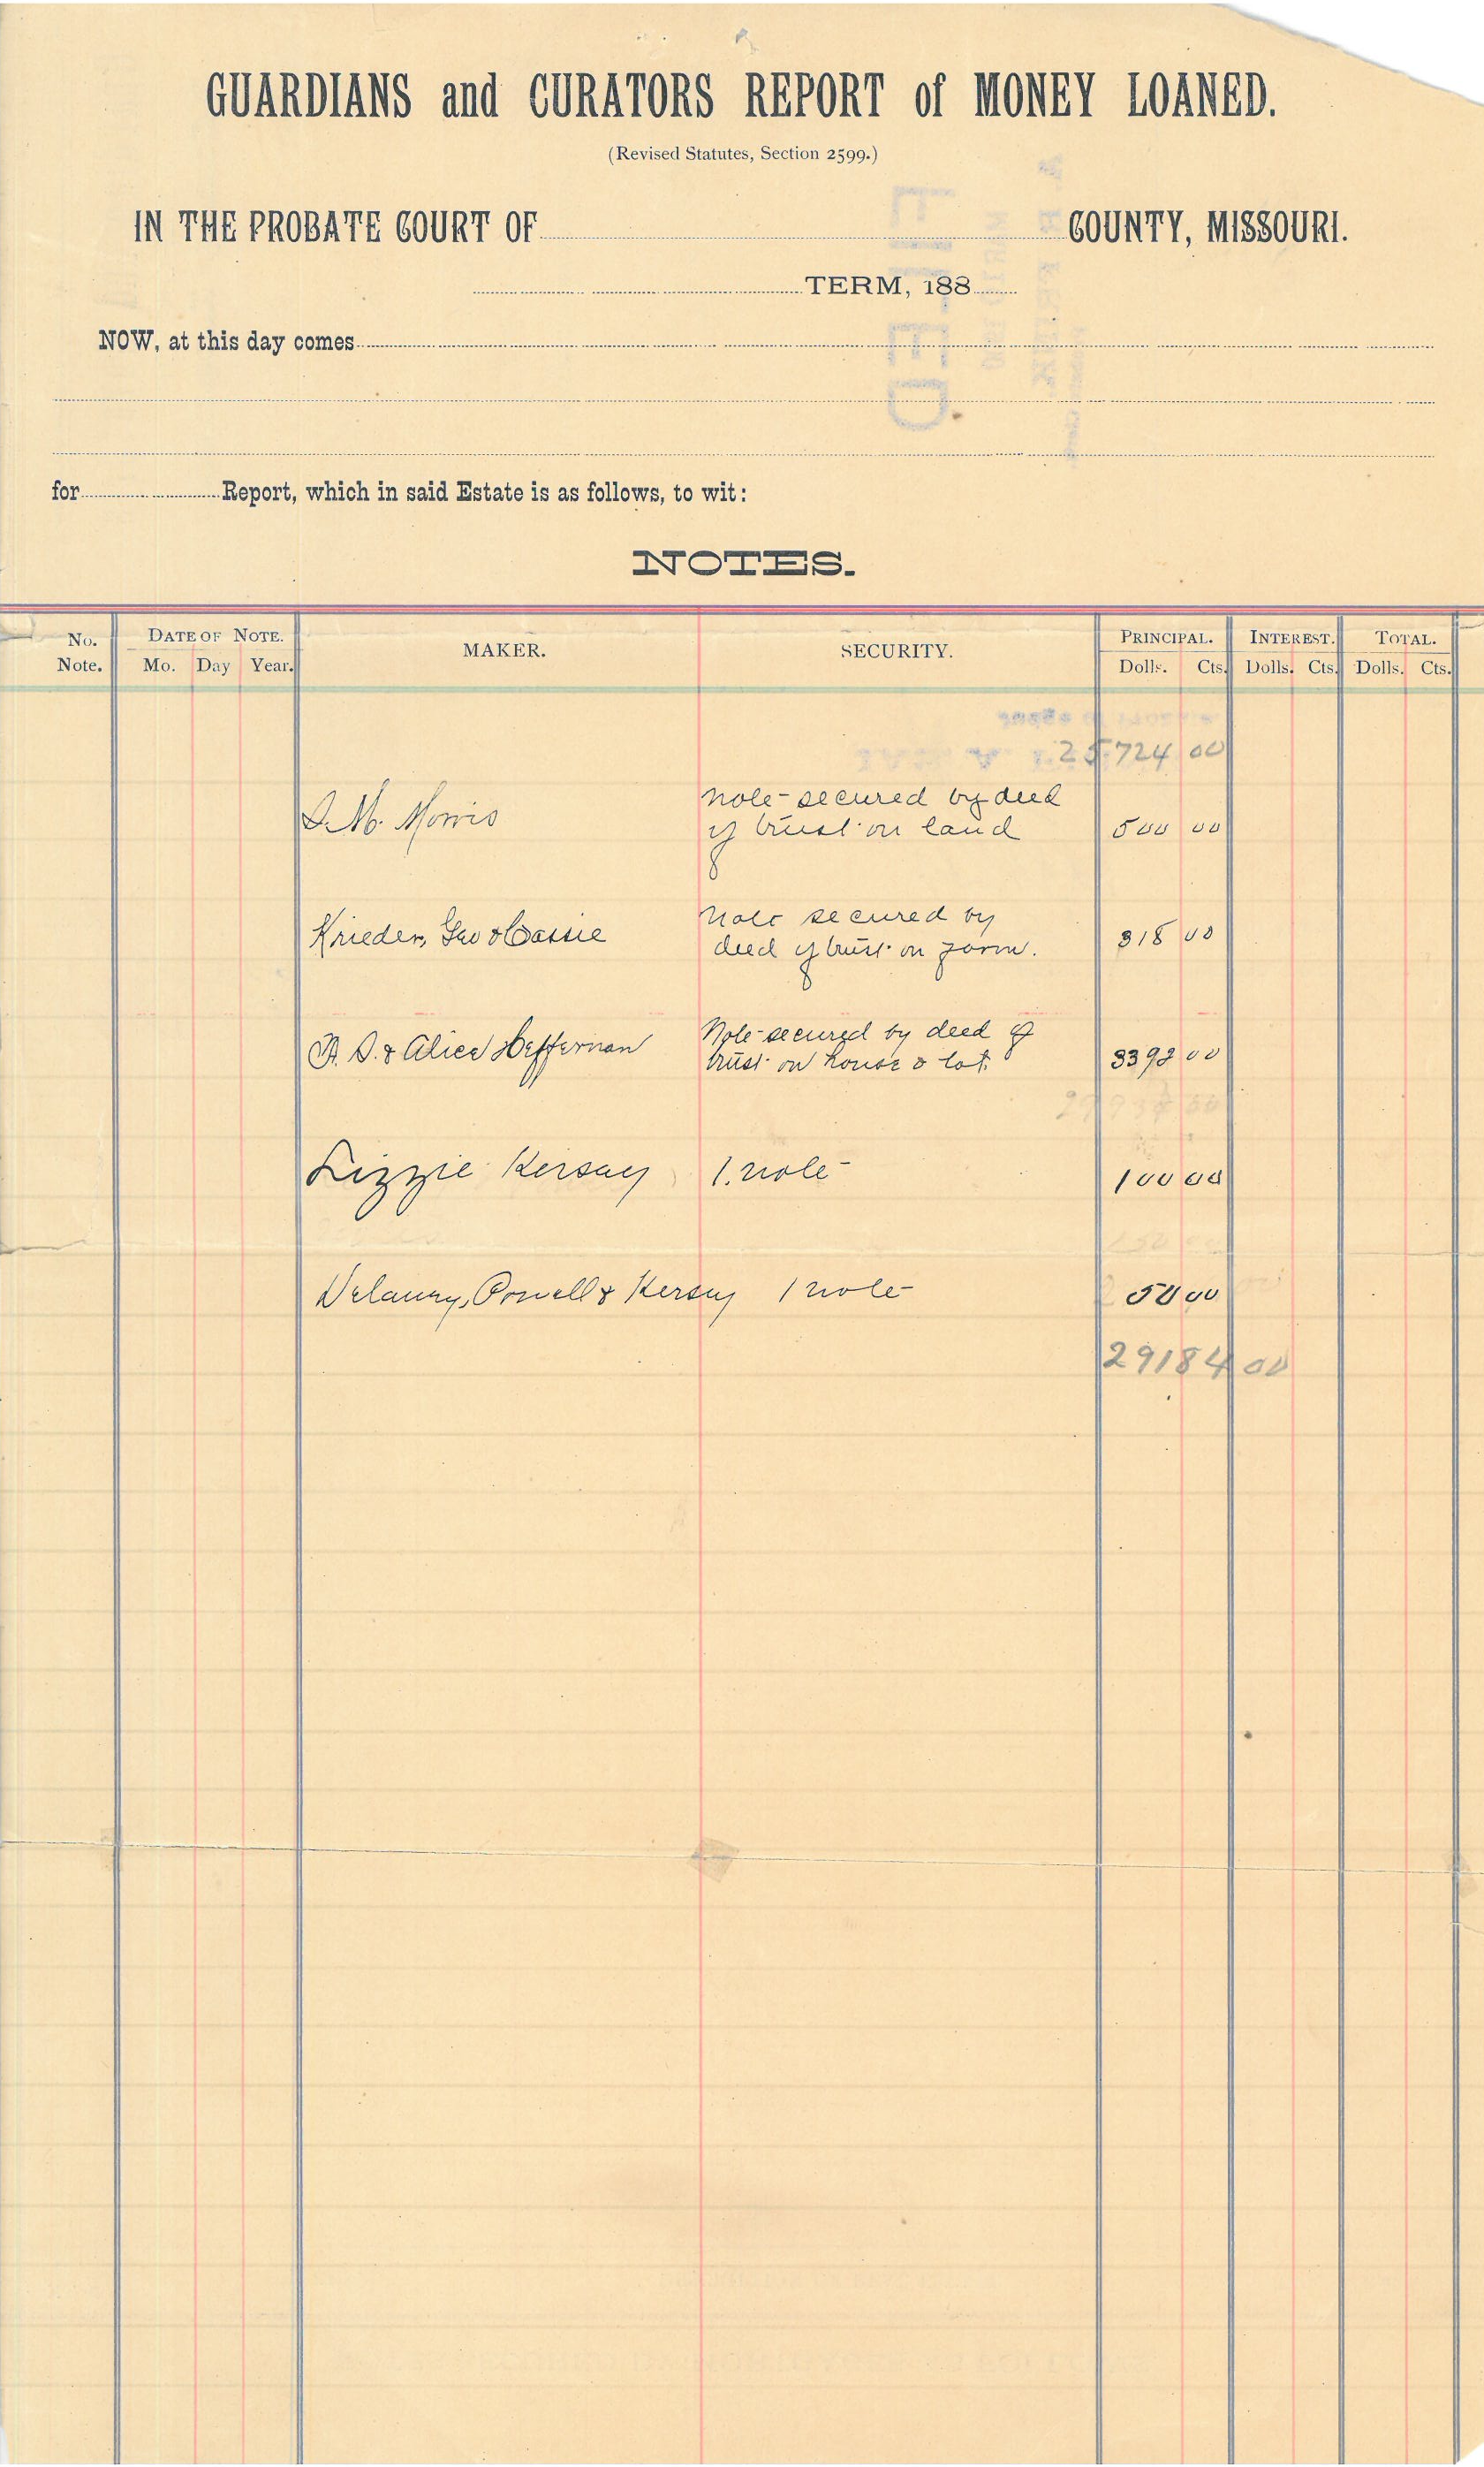 GUARDIANS and CURATORS REPORT of MONEY LOANED.
(Revised Statutes, Section 2599.)
IN THE PROBATE COURT OF COUNTY, MISSOURI.
TERM, 188
NOW, at this day comes
for Report, which in said Estate is as follows, to wit:
NOTES.
No. Note. DATE OF NOTE. Mo. Day Year. MAKER. SECURITY. PRINCIPAL. Dolls. Cts. INTEREST. Dolls. Cts. TOTAL. Dolls. Cts.
25724 00
S. M. Morris Note secured by deed
of trust on land 500 00
Krieder, Geo & Cassie Note secured by
deed of trust on farm. 318 00
& Alice Heffernan Note secured by deed of
trust on house & lot. 3392 00
Lizzie Kersey 1. note 100 00
Delaney, Powell & Kersey 1 note 50 00
29184 00
FILED